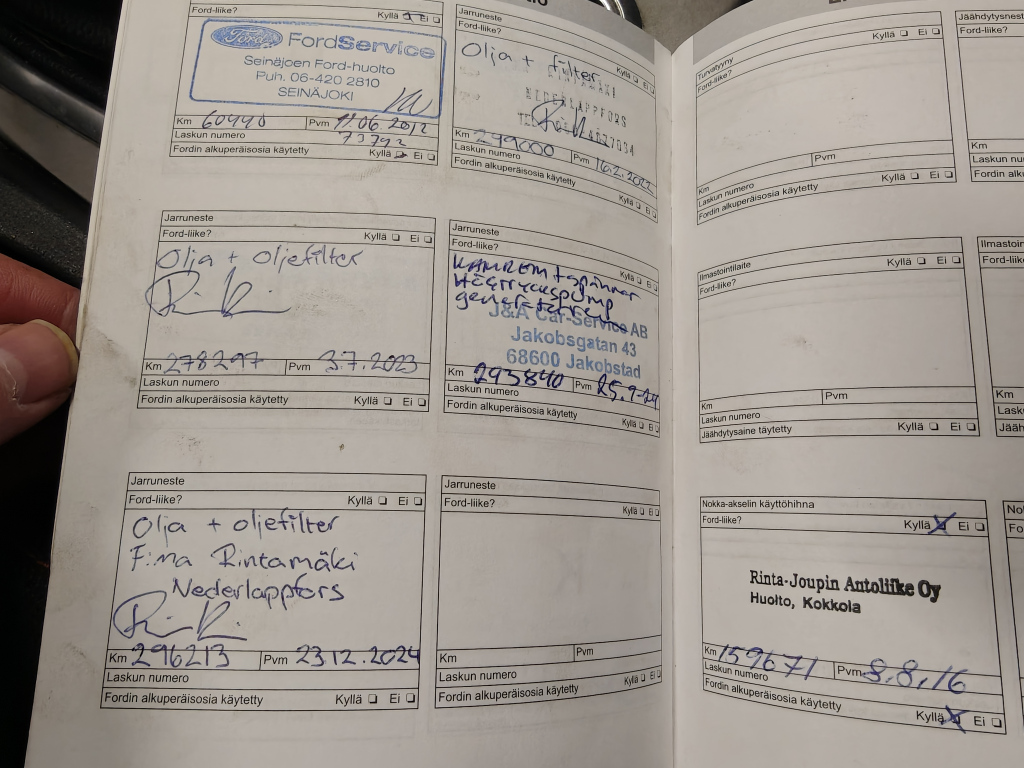 Ford-liike? Kyllä Ei
Ford
FordService
Seinäjoen Ford-huolto
Puh. 06-420 2810
SEINÄJOKI
Km 60440 Pvm 11.06.2012
Laskun numero 73792
Fordin alkuperäisosia käytetty Kyllä Ei
Jarruneste
Ford-liike? Kyllä Ei
Olja + filter
NEDERLAPPFORS
Km 249000 Pvm 16.2.2022
Laskun numero
Fordin alkuperäisosia käytetty Kyllä Ei
Jarruneste
Ford-liike? Kyllä Ei
Olja + oljefilter
Km 278297 Pvm 3.7.2023
Laskun numero
Fordin alkuperäisosia käytetty Kyllä Ei
Jarruneste
Ford-liike? Kyllä Ei
KAMREM + spännar
Högtryckspump
generatorrem
J&A Car-Service AB
Jakobsgatan 43
68600 Jakobstad
Km 293840 Pvm 25.9-24
Laskun numero
Fordin alkuperäisosia käytetty Kyllä Ei
Jarruneste
Ford-liike? Kyllä Ei
Olja + oljefilter
F:ma Rintamäki
Nederlappfors
Km 296213 Pvm 23.12.2024
Laskun numero
Fordin alkuperäisosia käytetty Kyllä Ei
Jarruneste
Ford-liike? Kyllä Ei
Km Pvm
Laskun numero
Fordin alkuperäisosia käytetty Kyllä Ei
Turvatyyny Kyllä Ei
Ford-liike?
Km Pvm
Laskun numero
Fordin alkuperäisosia käytetty Kyllä Ei
Ilmastointilaite Kyllä Ei
Ford-liike?
Km Pvm
Laskun numero
Jäähdytysaine täytetty Kyllä Ei
Nokka-akselin käyttöhihna
Ford-liike? Kyllä Ei
Rinta-Joupin Autoliike Oy
Huolto, Kokkola
Km 159671 Pvm 8.8.16
Laskun numero
Fordin alkuperäisosia käytetty Kyllä Ei
Jäähdytysnest
Ford-liike?
Km
Laskun nu
Fordin alku
Ilmastoin
Ford-liike
Km
Lask
Jääh
No
Fo